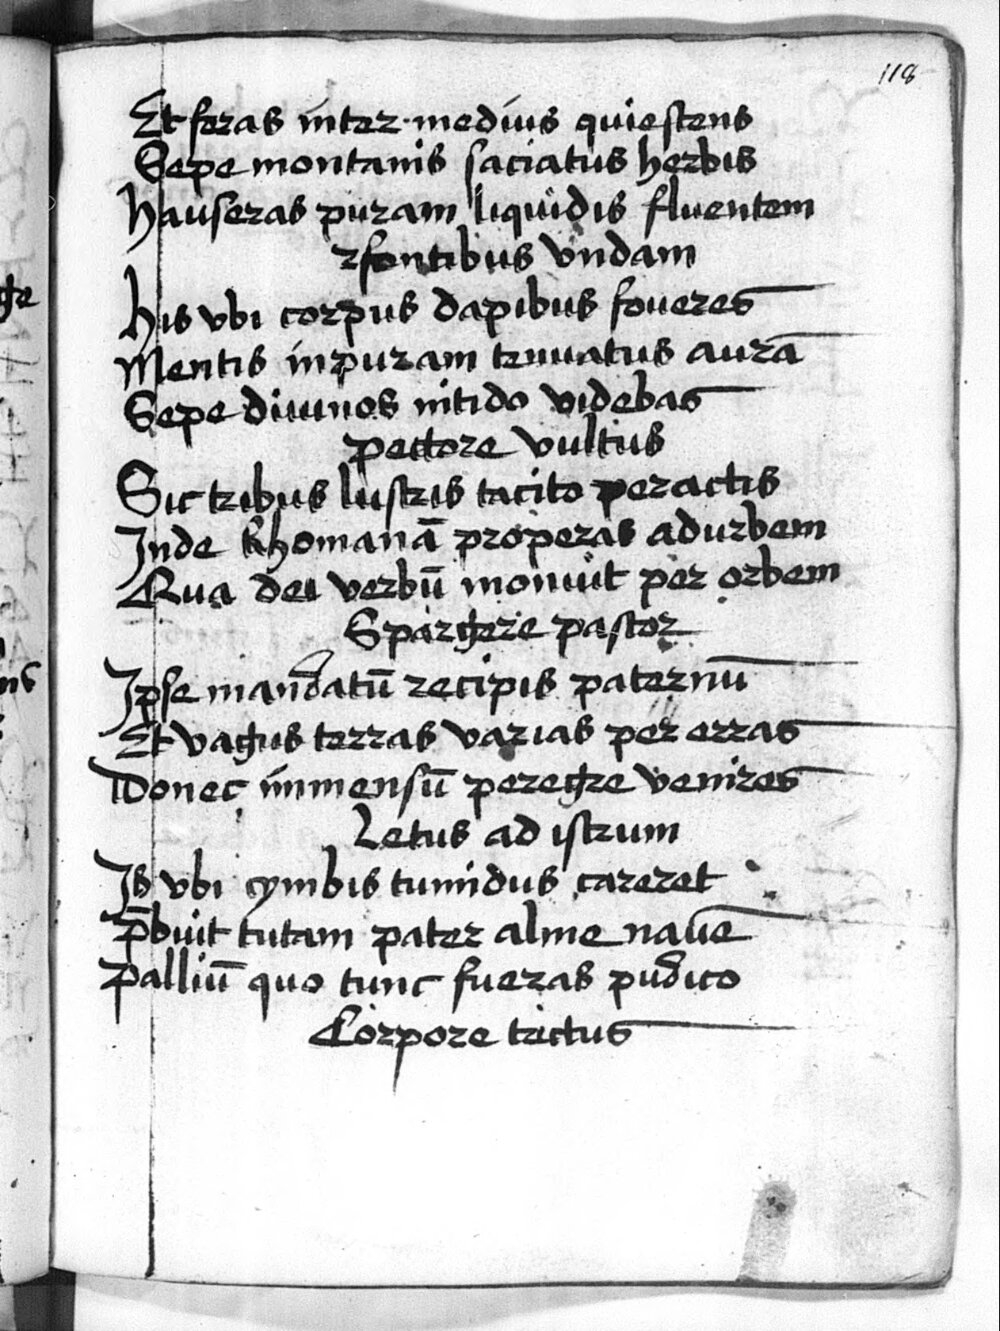 118
Et feras inter medius quiescens
Sepe montanis saciatus herbis
Hauseras puram liquidis fluentem
fontibus vndam
His vbi corpus dapibus foueres
Mentis in puram tenuatus aurā
Sepe diuinos nitido videbas
pectore vultus
Sic tribus lustris tacito peractis
Inde Rhomanā properas ad urbem
Qua dei verbū monuit per orbem
Spargere pastor
Ipse mandatū recipis paternū
Et vagus terras varias per erras
Donec immensū peregre venires
Letus ad istrum
Is vbi cymbis tumidus careret
p̄buit tutam pater alme nauē
Palliū quo tunc fueras pudico
Corpore tectus